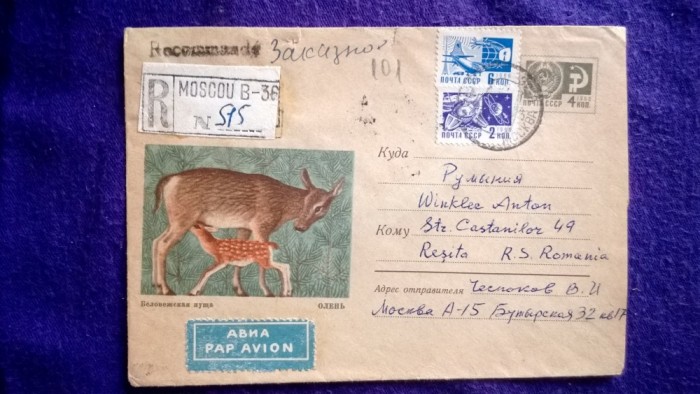 Recommandé Заказное
101
R MOSCOU B-36
N 595
ПОЧТА СССР 6 КОП
ПОЧТА СССР 2 КОП
ПОЧТА СССР 4 КОП
МОСКВА
Куда
Румыния
Winkler Anton
Кому Str. Castanilor 49
Reşita R.S. Romania
Адрес отправителя Чесноков В. И
Москва А-15 Бутырская 32 кв 17
Беловежская пуща ОЛЕНЬ
АВИА
PAR AVION